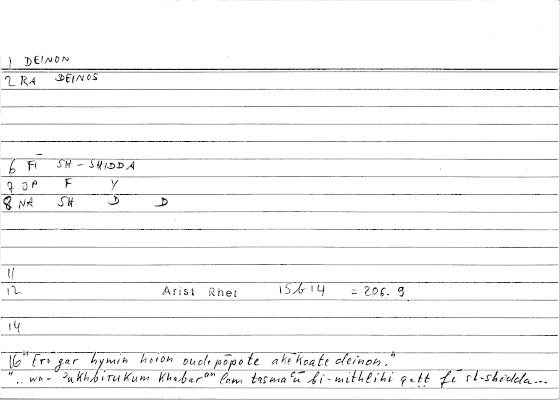 1 DEINON
2 RA DEINOS
6 FĪ SH-SHIDDA
7 JP F Y
8 NA SH D D
11
12 Arist Rhet 15b14 = 206.9
14
16 "Erō gar hymin hoion oudepōpote akēkoate deinon."
".. wa-ʾukhbirukum khabarᵃⁿ lam tasmaʿū bi-mithlihi qaṭṭ fī sh-shidda...